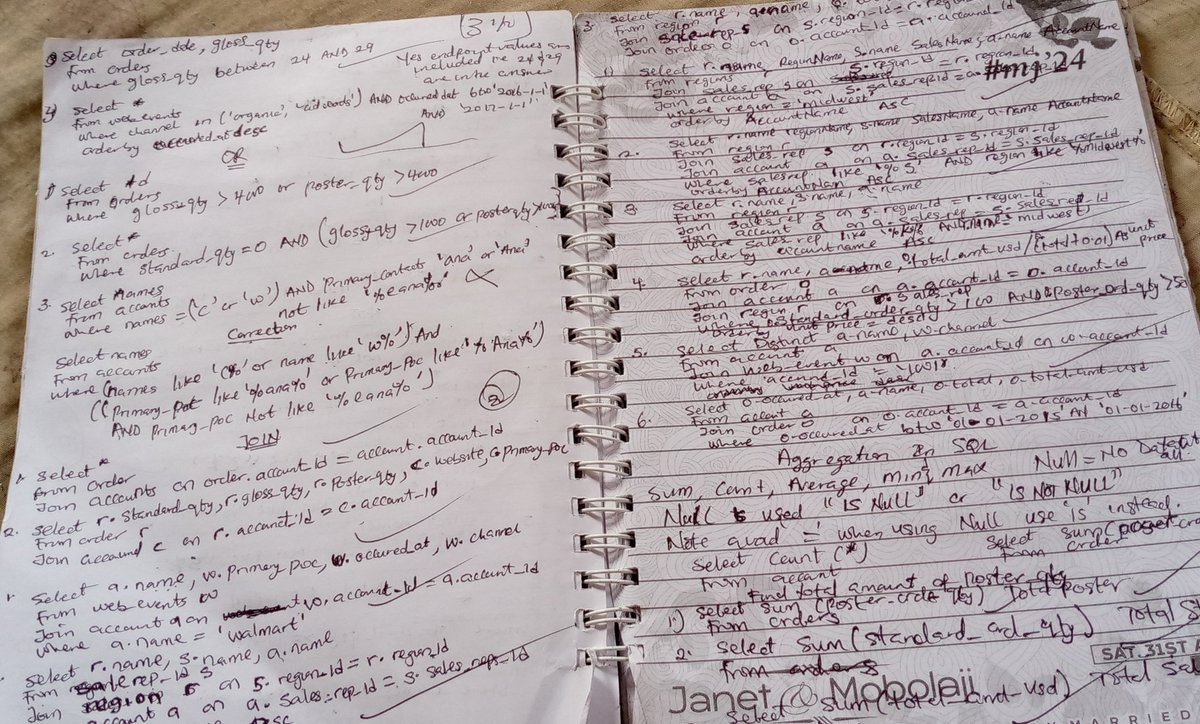 (3½)
Select order_date, gloss_qty
from orders
where gloss-qty between 24 AND 29
Yes endpoint values are
included i.e 24 & 29
are in the answer
4) Select *
from web events
where channel in ('organic', 'adwords') AND occured at btw '2016-1-1'
AND '2017-1-1'
order by occured_at desc
OR
1) Select id
from orders
where gloss-qty > 4000 or poster_qty > 4000
2. Select *
from orders
where standard_qty = 0 AND (gloss-qty > 1000 or poster qty > 1000
3. Select names
from accounts
where names = ('C' or 'W') AND Primary-contacts 'ana' or 'Ana'
not like '%eana%'
Correction
Select names
From accounts
where (names like 'C%' or name like 'W%') And
((Primary-poc like '%ana%' or Primary-Poc like '%Ana%')
AND Primary-poc Not like '%eana%')
2
JOIN
1. Select *
from order
Join accounts on order.account_id = account.account_id
2. Select r.standard_qty, r.gloss_qty, r.poster-qty, c.website, c.primary-poc
From order r
Join account c on r.account_id = c.account_id
1. Select a.name, w.primary poc, w.occured_at, w.channel
from web events w
Join account a on w.account_id = a.account_id
where a.name = 'walmart'
Select r.name, s.name, a.name
from
Join region r on s.region_id = r.region_id
account a on a.Sales-rep-id = s.sales_rep_id
3. Select r.name, a.name,
from region r
Join sales-rep s on s.region_id = r.region
Join orders o on o.account_id = a.account_id
1) Select r.name, RegionName, s.name SalesName, a.name AccountName
from regions
Join sales-rep s on s.region_id = r.region_id
Join account a on s.sales_rep id = a.
#mj'24
where region = 'midwest'
order by AccountName ASC
2. Select r.name regionName, s.name SalesName, a.name AccountName
From region r
Join Sales_rep s on r.region_id = s.region_id
Join account a on a.sales_rep-id = s.sales_rep_id
where Salesrep like '%S' AND region like '%midwest%
order by AccountName ASC
3 Select r.name, s.name, a.name
From region r
Join Sales_rep s on s.region_id = r.region_id
Join account a on a.sales_rep = sales_rep_id
where Sales_rep like '%K%' AND name = midwest)
order by accountname ASC
4. Select r.name, a.name, o.total_amt_usd/(total+0.01) As unit
price
from order o
Join account a on a.account_id = o.account_id
Join region r on sales_rep
where o.standard_order_qty > 100 AND poster_ord_qty > 50
order by unit price = desc
5. Select Distinct a.name, w.channel
From account a
Join web-event w on a.account_id on w.account_id
where account_id = '1001'
6. Select o.occured_at, a.name, o.total, o.total_amt_usd
from account a
Join order o on o.account_id = a.account_id
where o.occured_at btw '01-01-2015' An '01-01-2016'
Aggregation in SQL
Sum, Count, Average, min & max Null = No Data at
all.
Null is used "IS NULL" or "IS NOT NULL"
Note quad = when using Null use 'is' instead.
Select Count (*)
from account
Select sum(
from order
Find total amount of poster_qty
1.) Select Sum (Poster_order_qty) Total Poster
from orders
2. Select Sum (standard_ord_qty) Total S
from orders
SAT. 31ST A
Janet @ Mobolaji
Select Sum (total_amt-usd) Total Sa